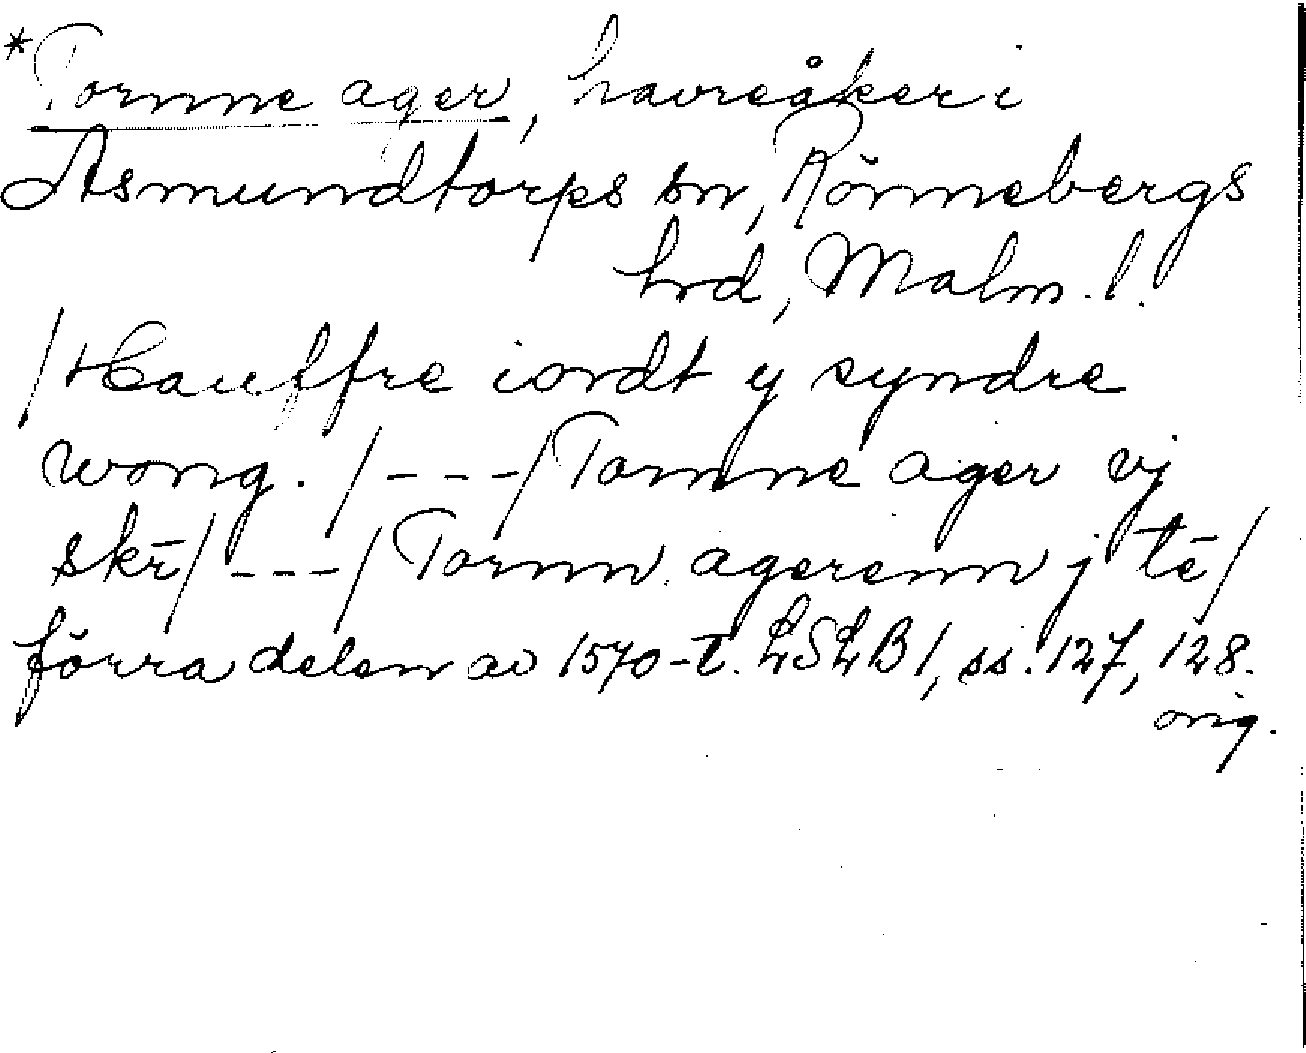 *Tornne ager, havreåker i
Asmundtorps sn, Rönnebergs
hrd, Malm. l.
/Hauffre iordt y syndre
wong. /---/ Tornne ager vj
skr̄/ ---/ Tornn agerenn j tē/
förra delen av 1570-t. LSLB1, ss. 127, 128.
orig.